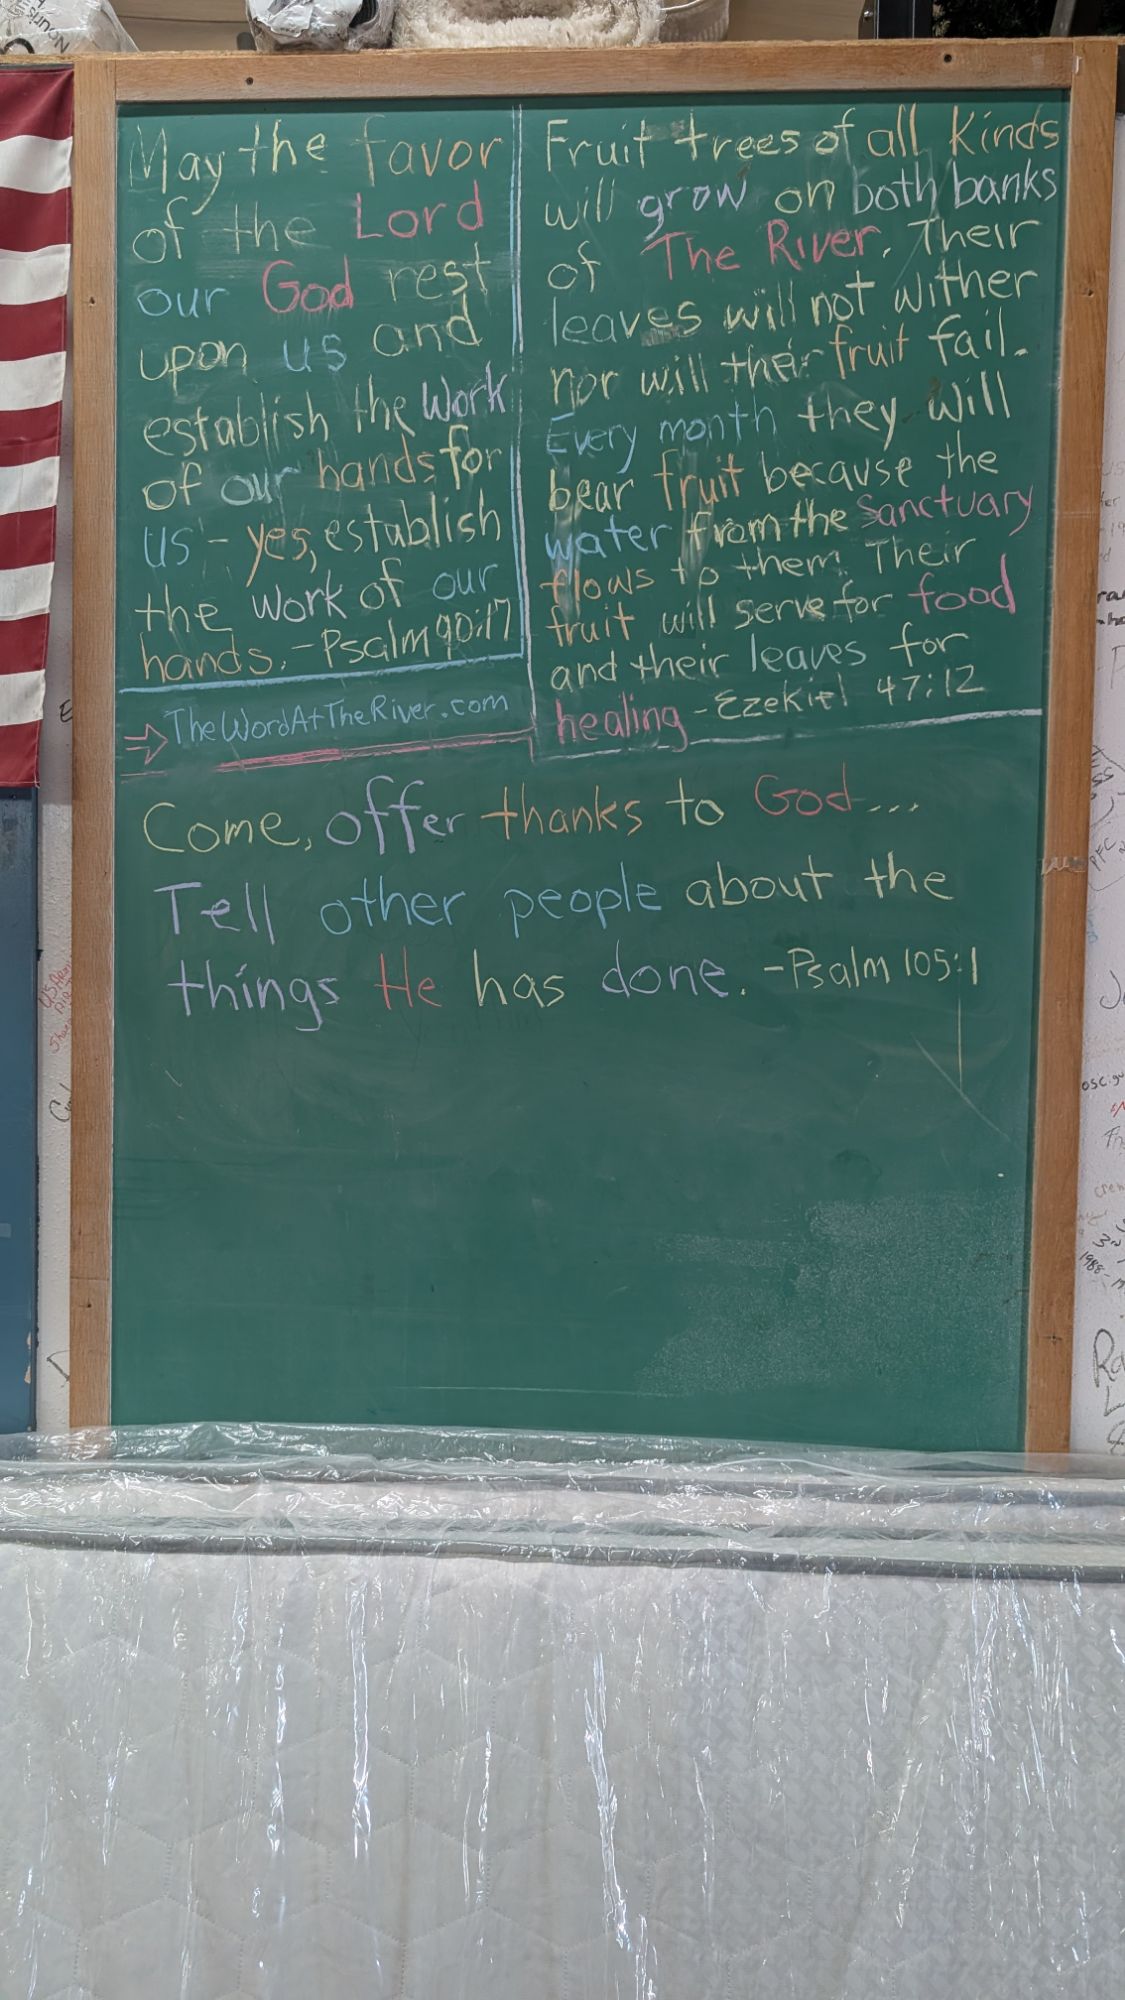 May the favor
of the Lord
our God rest
upon us and
establish the work
of our hands for
us - yes, establish
the work of our
hands. - Psalm 90:17
⇒ TheWordAtTheRiver.com
Fruit trees of all kinds
will grow on both banks
of The River. Their
leaves will not wither
nor will their fruit fail.
Every month they will
bear fruit because the
water from the Sanctuary
flows to them. Their
fruit will serve for food
and their leaves for
healing - Ezekiel 47:12
Come, offer thanks to God...
Tell other people about the
things He has done. - Psalm 105:1
PFC
1988